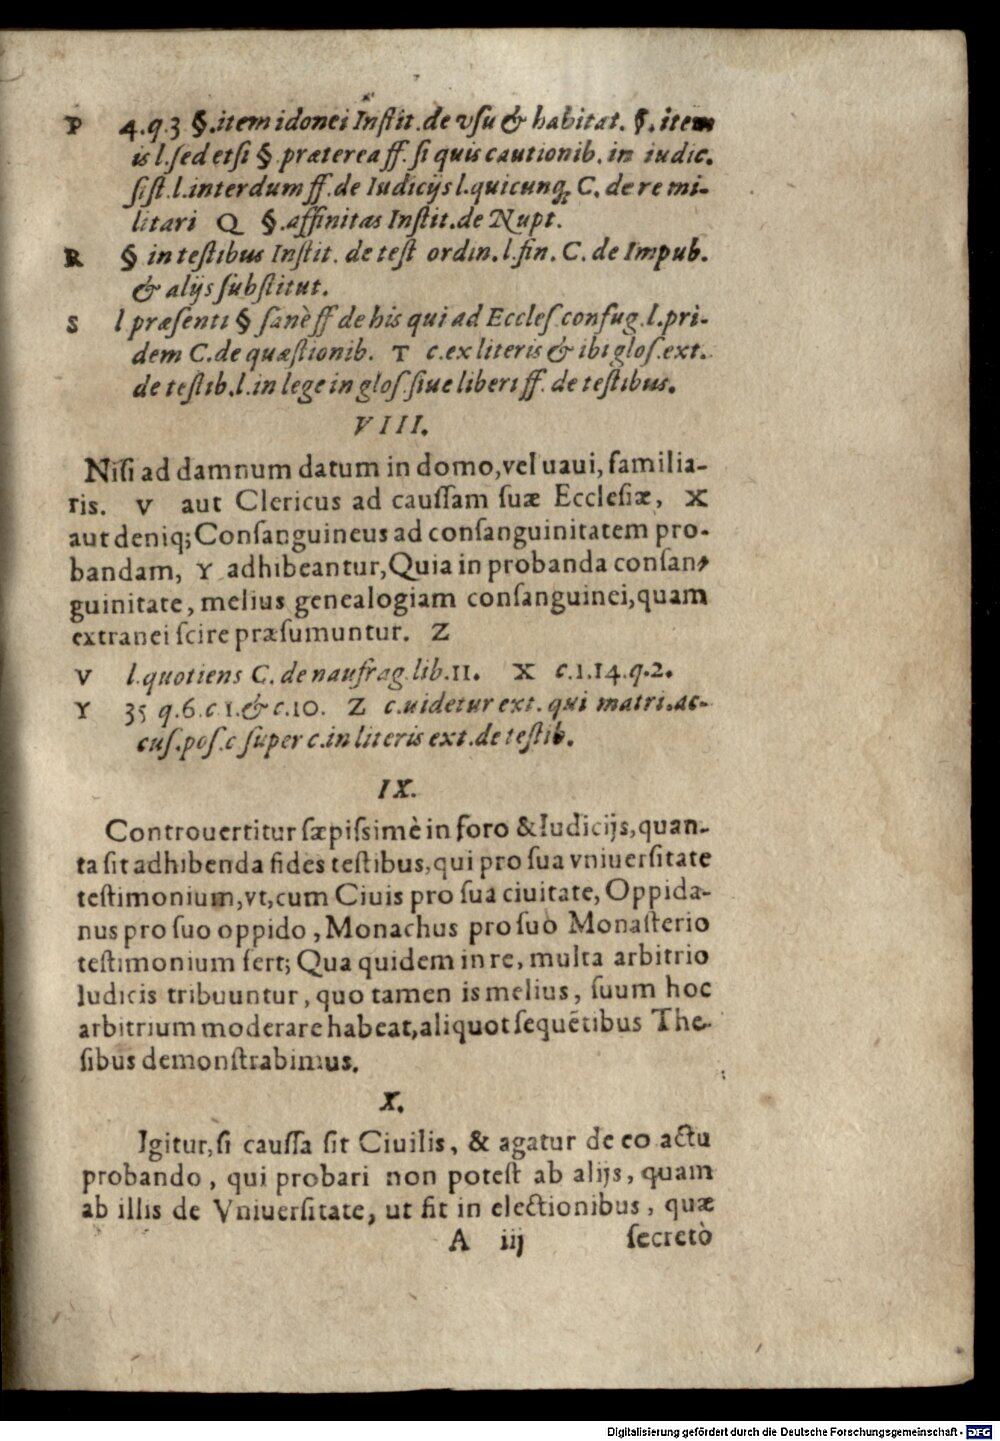 P 4.q.3 §.item idonei Instit.de vsu & habitat. §.item
is l.sed etsi § præterea ff. si quis cautionib. in iudic.
sist.l.interdum ff.de Iudicijs l.quicunq; C. de re mi-
litari Q §.affinitas Instit.de Nupt.
R § in testibus Instit. de test ordin.l.fin. C. de Impub.
& alijs substitut.
S l præsenti § sanè ff de his qui ad Eccles.confug.l.pri-
dem C.de quæstionib. T c.ex literis & ibi glos.ext.
de testib.l.in lege in glos.siue liberi ff. de testibus.
VIII.
Nisi ad damnum datum in domo,vel uaui, familia-
ris. V aut Clericus ad caussam suæ Ecclesiæ, X
aut deniq; Consanguineus ad consanguinitatem pro-
bandam, Y adhibeantur,Quia in probanda consan-
guinitate, melius genealogiam consanguinei,quam
extranei scire præsumuntur. Z
V l.quotiens C. de naufrag.lib.11. X c.1.14.q.2.
Y 35 q.6.c 1.& c.10. Z c.uidetur ext. qui matri.ac-
cus.pos.c super c.in literis ext.de testib.
IX.
Controuertitur sæpissimè in foro & Iudicijs,quan-
ta sit adhibenda fides testibus,qui pro sua vniuersitate
testimonium,vt,cum Ciuis pro sua ciuitate, Oppida-
nus pro suo oppido, Monachus pro suo Monasterio
testimonium fert; Qua quidem in re, multa arbitrio
Iudicis tribuuntur, quo tamen is melius, suum hoc
arbitrium moderare habeat,aliquot sequẽtibus The-
sibus demonstrabimus.
X.
Igitur,si caussa sit Ciuilis, & agatur de eo actu
probando, qui probari non potest ab alijs, quam
ab illis de Vniuersitate, ut fit in electionibus, quæ
A iij secretò
Digitalisierung gefördert durch die Deutsche Forschungsgemeinschaft - DFG